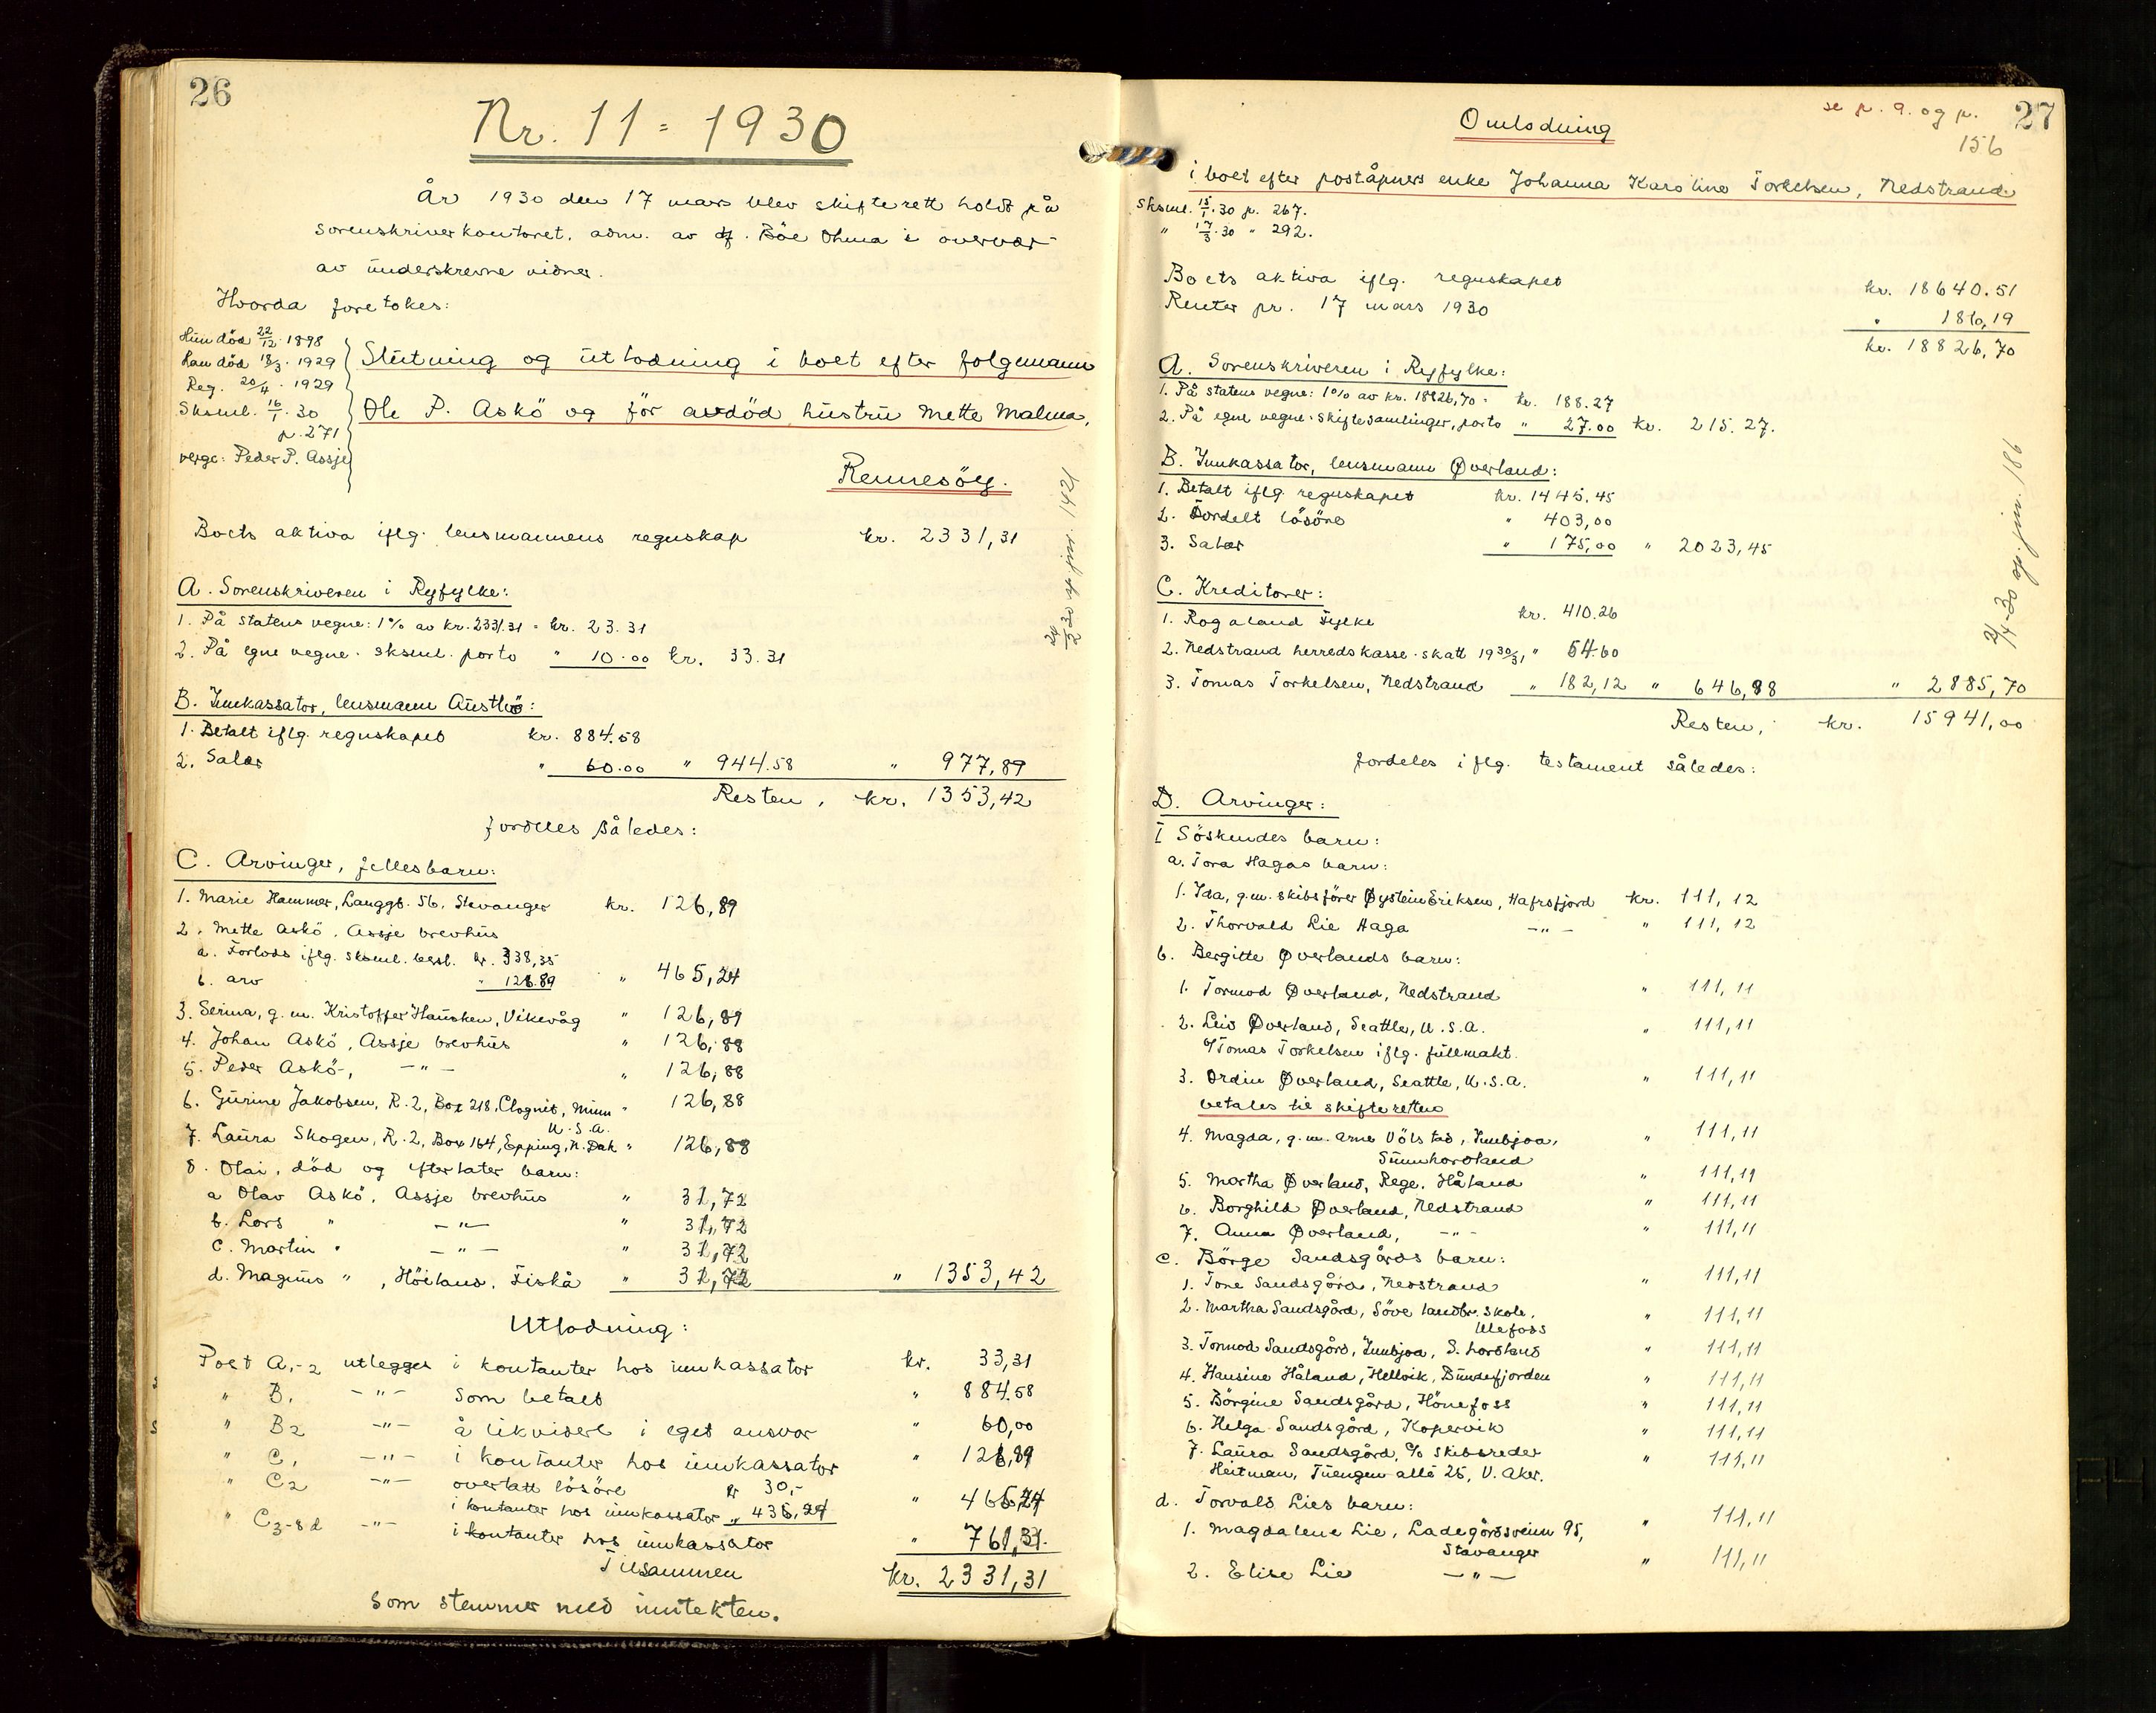 26
Nr. 11 = 1930
År 1930 den 17 mars blev skifterett holdt på
sorenskriverkontoret. adm. av df. Böe Ohma i overvær
av underskrevne vidner.
Hvorda foretokes:
Hun död 22/12 · 1898
Han död 18/3 · 1929
Reg. 20/4 · 1929
Sksml. 16/1 · 30
p. 271
verge: Peder P. Assje
Slutning og utlodning i boet efter folgemann
Ole P. Askö og för avdöd hustru Mette Malma,
Rennesöy.
Boets aktiva iflg. lensmannens regnskap kr. 2331,31
A. Sorenskriveren i Ryfylke:
1. På statens vegne: 1% av kr. 2331.31 = kr. 23.31
2. På egne vegne. sksml. porto " 10.00 kr. 33.31
B. Innkassator, lensmann Austbö:
1. Betalt iflg. regnskapet kr. 884.58
2. Salær " 60.00 " 944.58 " 977,89
Resten, kr. 1353,42
fordeles således:
C. Arvinger, fellesbarn:
1. Marie Hammer, Langgt. 56, Stavanger kr. 126,89
2. Mette Askö, Assje brevhus
a. Forlods iflg. sksml. besl. kr. 338,35
b. arv " 126.89 " 465,24
3. Serina, g.m. Kristoffer Hausken, Vikevåg " 126,89
4. Johan Askö, Assje brevhus " 126,88
5. Peder Askö, -"- " 126,88
6. Gurine Jakobsen, R.2, Box 218, Cloquet, Minn " 126,88
U.S.A.
7. Laura Skogen, R.2, Box 164, Epping, N. Dak " 126,88
8. Olai, död og efterlater barn:
a Olav Askö, Assje brevhus " 31,72
b. Lars " -"- " 31,72
c. Martin " -"- " 31,72
d. Magnus ", Höiland, Fiskå " 31,72 " 1353,42
Utlodning:
Post A1-2 utlegges i kontanter hos innkassator kr. 33,31
" B1 -"- som betalt " 884.58
" B2 -"- å likvidert i eget ansvar " 60,00
" C1 -"- i kontanter hos innkassator " 126,89
" C2 -"- overtatt lösöre kr 30,-
i kontanter hos innkassator " 435,24 " 465,24
" C3-8d -"- i kontanter hos innkassator " 761,31.
Tilsammen kr. 2331,31
som stemmer med inntekten.
27
se p. 9. og p.
156
Omlodning
i boet efter poståpners enke Johanna Karoline Torkelsen, Nedstrand.
Sksml. 15/1 · 30 p. 267.
" 17/3 · 30 " 292.
Boets aktiva iflg. regnskapet kr. 18640.51
Renter pr. 17 mars 1930 " 186,19
kr. 18826,70
A. Sorenskriveren i Ryfylke:
1. På statens vegne: 1% av kr. 18826,70 = kr. 188.27
2. På egne vegne. skiftesamlinger, porto " 27.00 kr. 215.27.
B. Innkassator, lensmann Øverland:
1. Betalt iflg. regnskapet kr. 1445.45
2. Fordelt lösöre " 403,00
3. Salær " 175,00 " 2023,45
C. Kreditorer:
1. Rogaland Fylke kr. 410.26
2. Nedstrand herredskasse. skatt 1930/31 " 54.60
3. Tomas Torkelsen, Nedstrand " 182,12 " 646,98 " 2885,70
Resten, kr. 15941,00
fordeles iflg. testament således:
D. Arvinger:
I Söskendes barn:
a. Tora Hagas barn:
1. Ida, g.m. skibsförer Øystein Eriksen, Hafrsfjord kr. 111,12
2. Thorvald Lie Haga -"- " 111,12
b. Bergitte Øverlands barn:
1. Tormod Øverland, Nedstrand " 111,11
2. Leiv Øverland, Seattle, U.S.A. " 111,11
c/o Tomas Torkelsen iflg. fullmakt.
3. Ordin Øverland, Seattle, U.S.A. " 111,11
betales til skifteretten
4. Magda, g.m. Arne Völstad, Innbjoa, " 111,11
Sunnhordland
5. Martha Øverland, Rege, Håland " 111,11
6. Borghild Øverland, Nedstrand " 111,11
7. Anna Øverland, -"- " 111,11
c. Börge Sandsgårds barn:
1. Tone Sandsgård, Nedstrand " 111,11
2. Martha Sandsgård, Söve landbr. skole, " 111,11
Ulefoss
3. Tormod Sandsgård, Innbjoa, S. hordland " 111,11
4. Hansine Håland, Hellvik, Bunnefjorden " 111,11
5. Börgine Sandsgård, Hönefoss " 111,11
6. Helga Sandsgård, Kopervik " 111,11
7. Laura Sandsgård, c/o Skibsreder " 111,11
Heitman, Tuengen allé 25, V. Aker.
d. Torvald Lies barn:
1. Magdalene Lie, Ladegårdsveien 95, " 111,11
Stavanger
2. Elise Lie -"- " 111,11